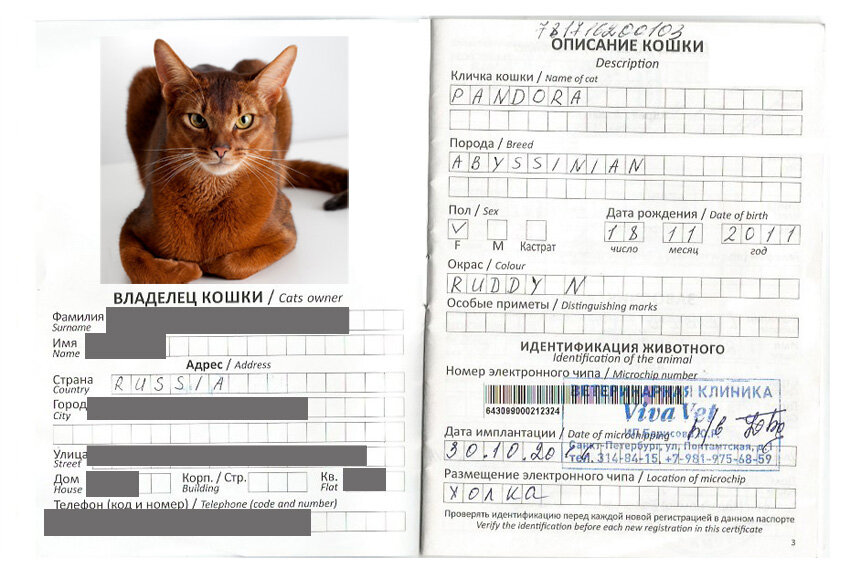 ВЛАДЕЛЕЦ КОШКИ / Cats owner
Фамилия
Surname
Имя
Name
Адрес / Address
Страна
Country
RUSSIA
Город
City
Улица
Street
Дом
House
Корп. / Стр.
Building
Кв.
Flat
Телефон (код и номер) / Telephone (code and number)
ОПИСАНИЕ КОШКИ
Description
Кличка кошки / Name of cat
PANDORA
Порода / Breed
ABYSSINIAN
Пол / Sex
F M Кастрат
Дата рождения / Date of birth
18 11 2011
число месяц год
Окрас / Colour
RUDDY N
Особые приметы / Distinguishing marks
ИДЕНТИФИКАЦИЯ ЖИВОТНОГО
Identification of the animal
Номер электронного чипа / Microchip number
643099000212324
ВЕТЕРИНАРНАЯ КЛИНИКА
Viva Vet
Санкт-Петербург, ул.
тел. 314-84-15, +7-981-975-68-59
Дата имплантации / Date of microchipping
30.10.20
Размещение электронного чипа / Location of microchip
ХОЛКА
Проверять идентификацию перед каждой новой регистрацией в данном паспорте
Verify the identification before each new registration in this certificate
3